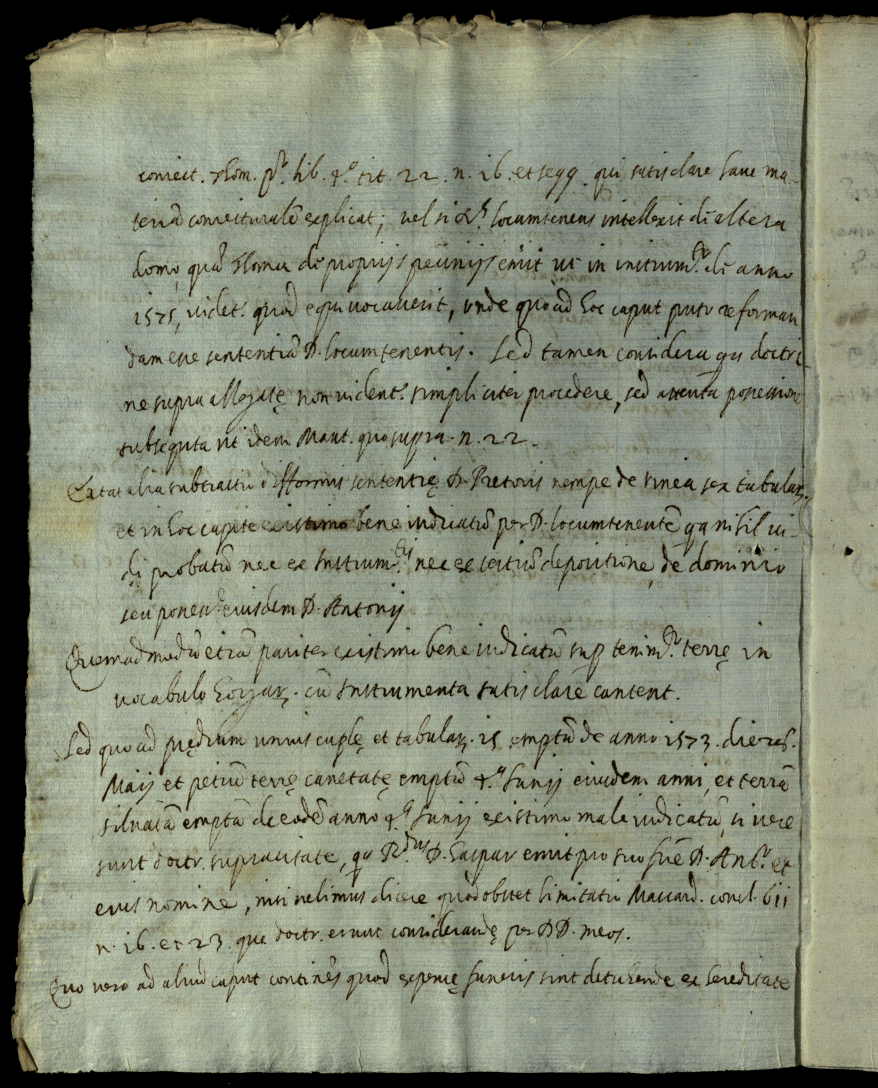 coniect. ... lib. 4.° tit. 22. n. 16. et seqq. qui satis clare hanc ma-
teriã coniecturalẽ explicat; vel si D. locumtenens intellexit de altera
domo, quã ... de proprijs pecunijs emit ut in instrum.to de anno
1575, videt.r quod equivocaverit, unde quo ad hoc caput puto reforman
dam esse sententiã D. locumtenentis. Sed tamen considero qa doctri-
ne supra allegatę non vident.r simpliciter procedere, sed attenta possessione
subsequta ut idem Mant. quo supra n. 22.
Extat alia subtractio difformis sententię D. Pretoris nempe de vinea sex tabular.
et in hoc capite existimo bene iudicatũ per D. locumtenentẽ qa nihil vi-
di probatũ nec ex instrum.tis nec ex testiũ depositione, de dominio
seu possess.e eiusdem D. Antonij
Quemadmodũ etiã pariter existimo bene iudicatũ sup tenim.to terrę in
vocabulo ... cũ instrumenta satis clare cantent.
Sed quo ad prędium unius cuplę et tabular. 15 emptũ de anno 1573. die ...
Maij et petiũ terrę canetatę emptũ 4.° Junij eiusdem anni, et terrã
silvatã emptã de eodẽ anno 4.° Junij existimo male iudicatũ, si vere
sunt doctr. supracitate, qa R.dus D. Gaspar emit pro suo frẽ D. Ant.o et
eius nomine, nisi velimus dicere quod obstet limitatio Mascard. concl. 611
n. 16. et 23. que doctr. erunt considerandę per DD. meos.
Quo vero ad aliud caput continẽs quod expensę funeris sint detrahende ex hereditate